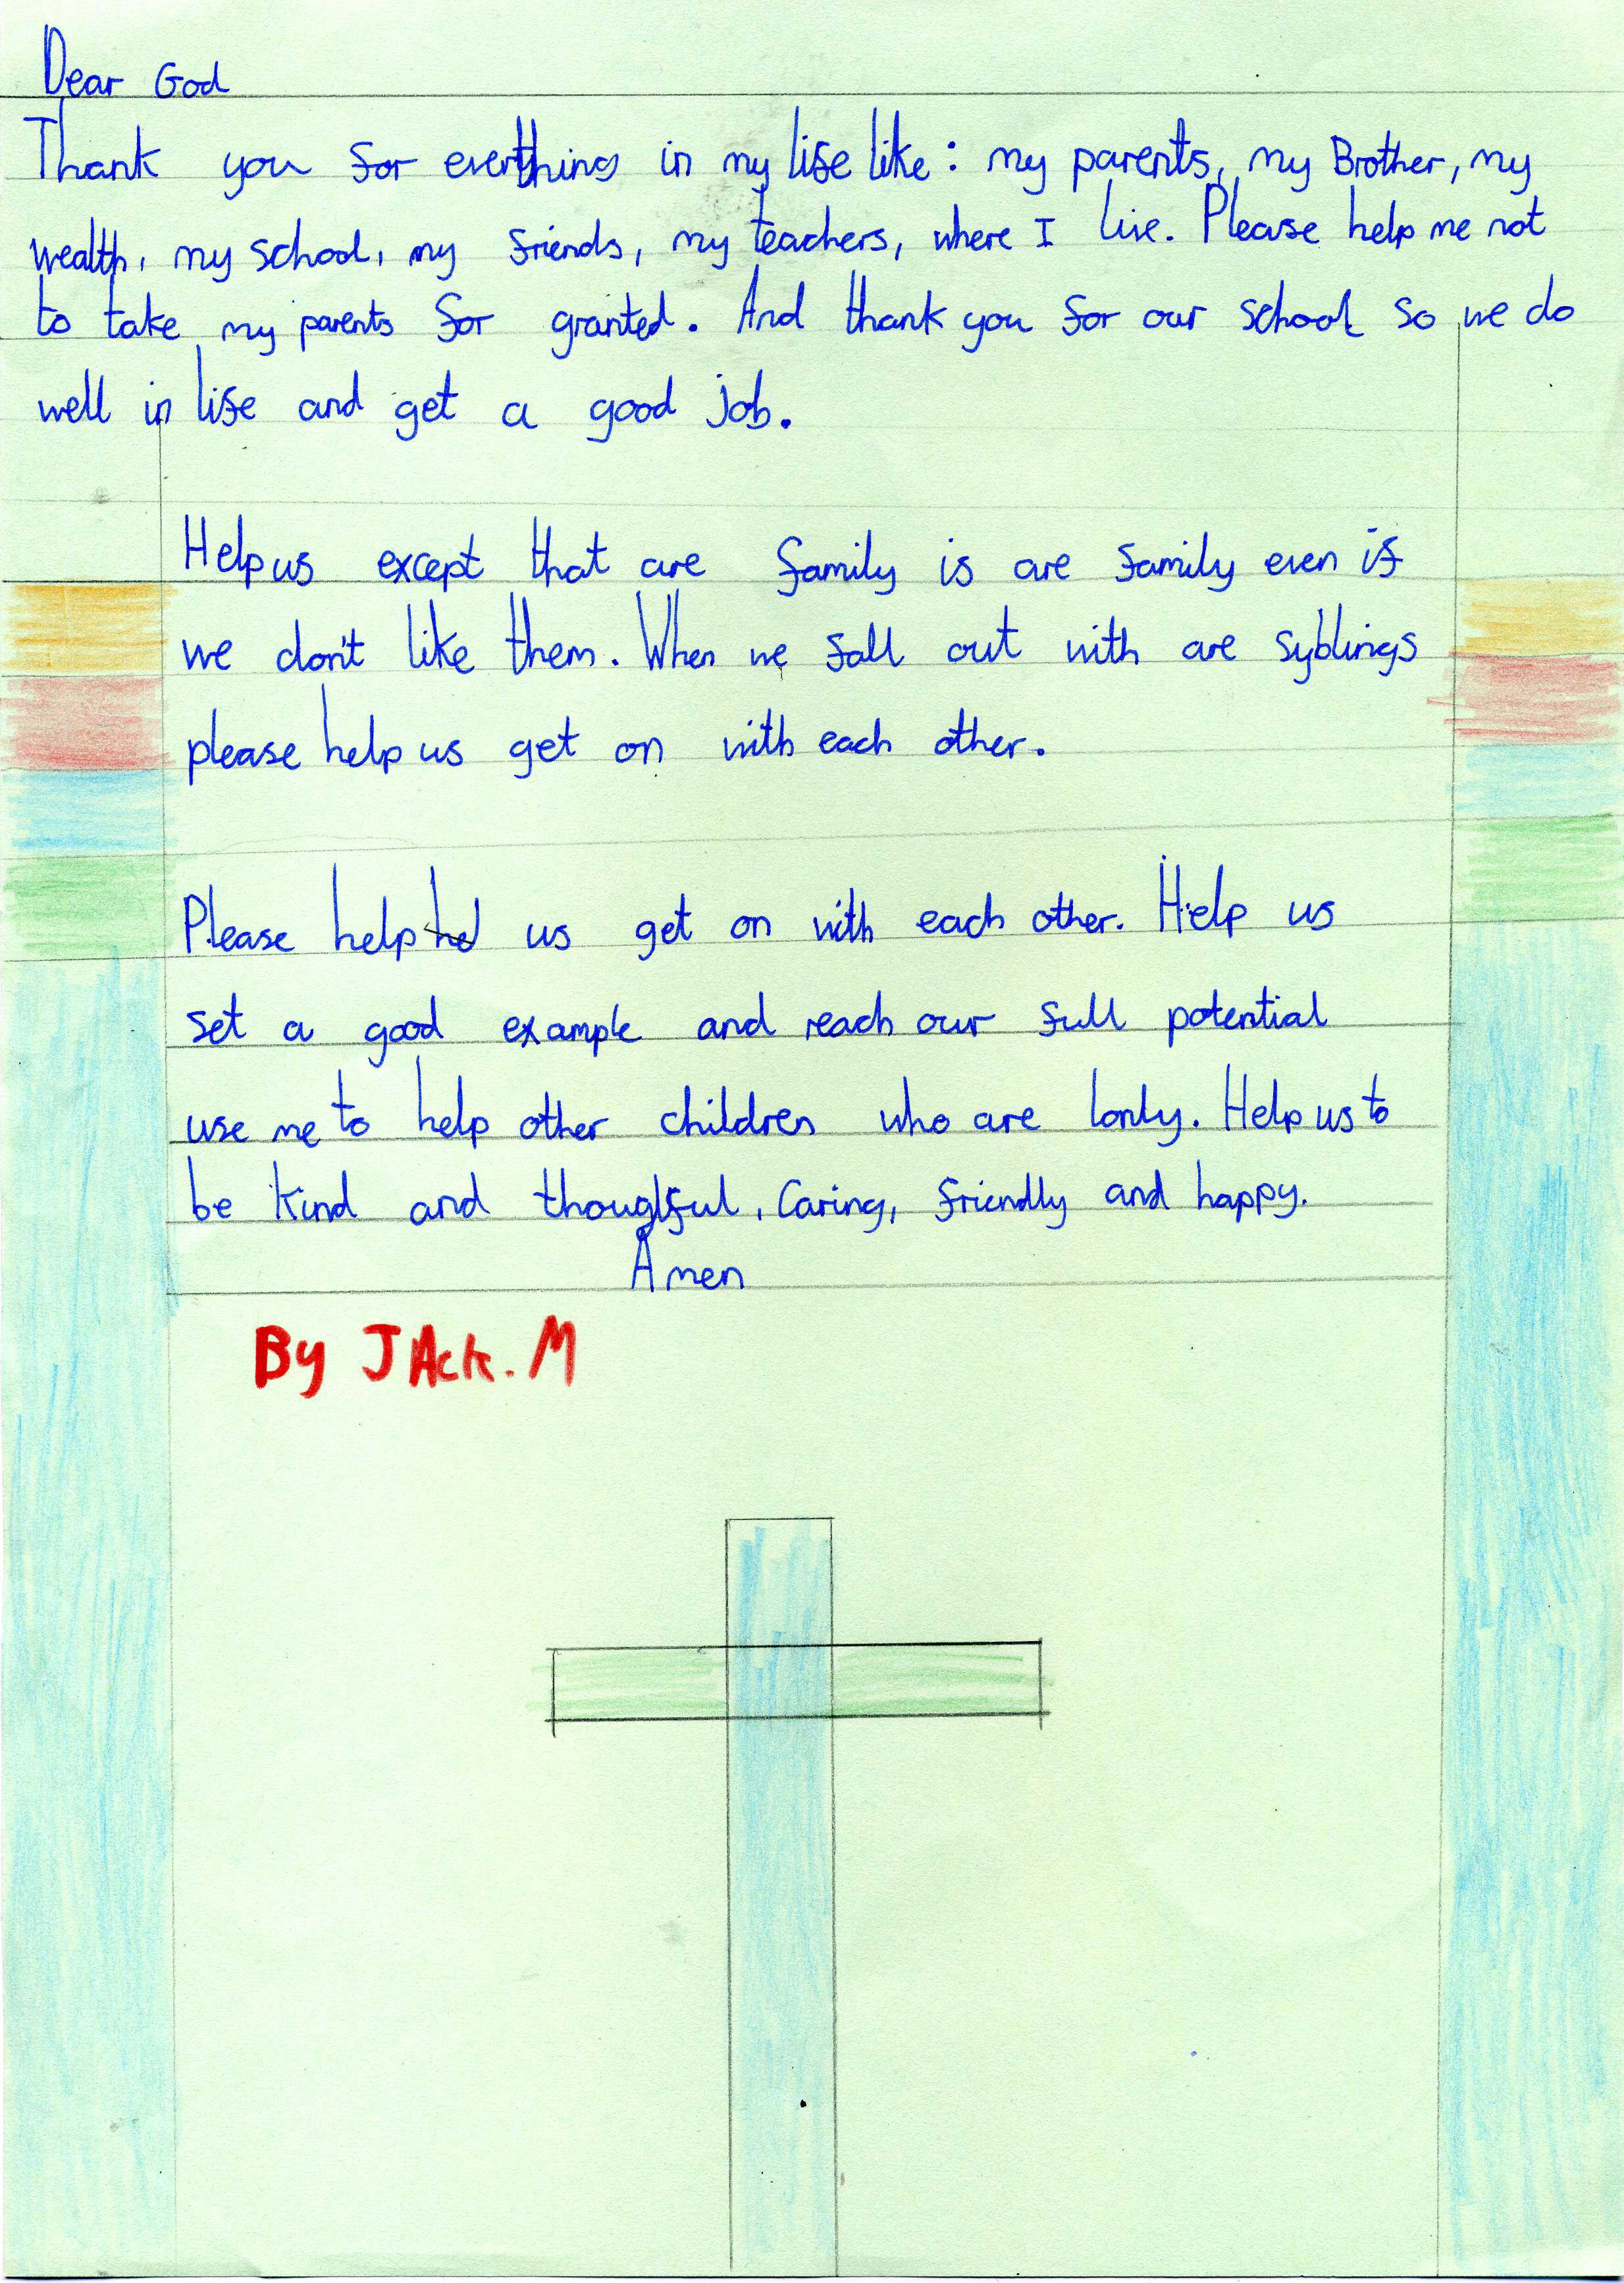 Dear God
Thank you for everthing in my life like : my parents, my Brother, my
wealth, my school, my friends, my teachers, where I live. Please help me not
to take my parents for granted. And thank you for our school so we do
well in life and get a good job.
Help us except that are family is are family even if
we don't like them. When we fall out with are syblings
please help us get on with each other.
Please help us get on with each other. Help us
set a good example and reach our full potential
use me to help other children who are lonly. Help us to
be kind and thoughful, Caring, friendly and happy.
Amen
By JAck. M